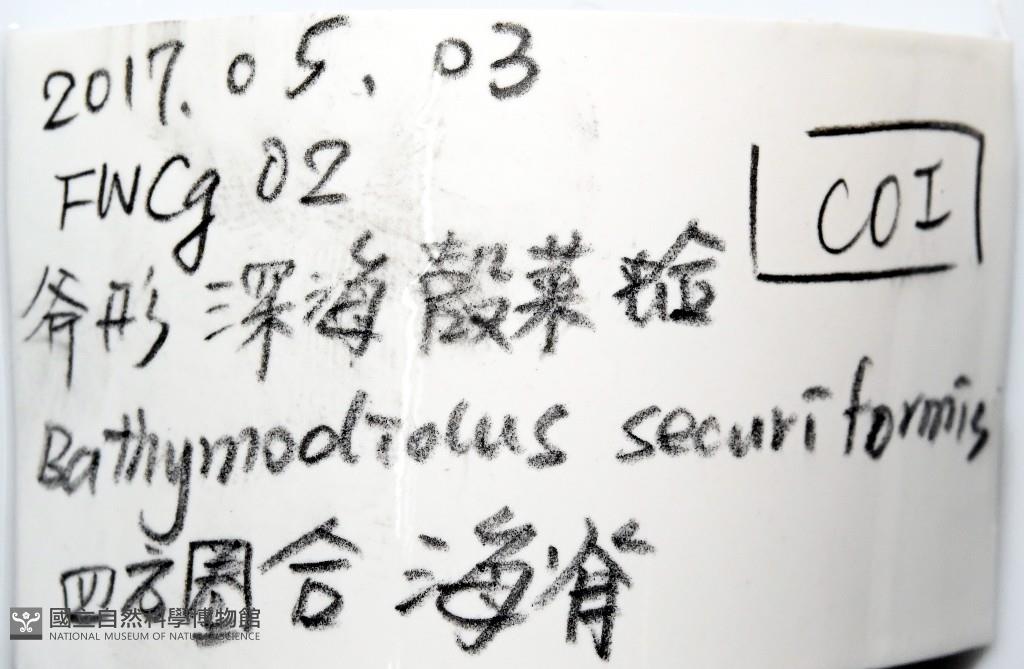 2017.05.03
FWCg 02
COI
斧形深海殼菜蛤
Bathymodiolus securiformis
四方圈合海脊
國立自然科學博物館
NATIONAL MUSEUM OF NATURAL SCIENCE